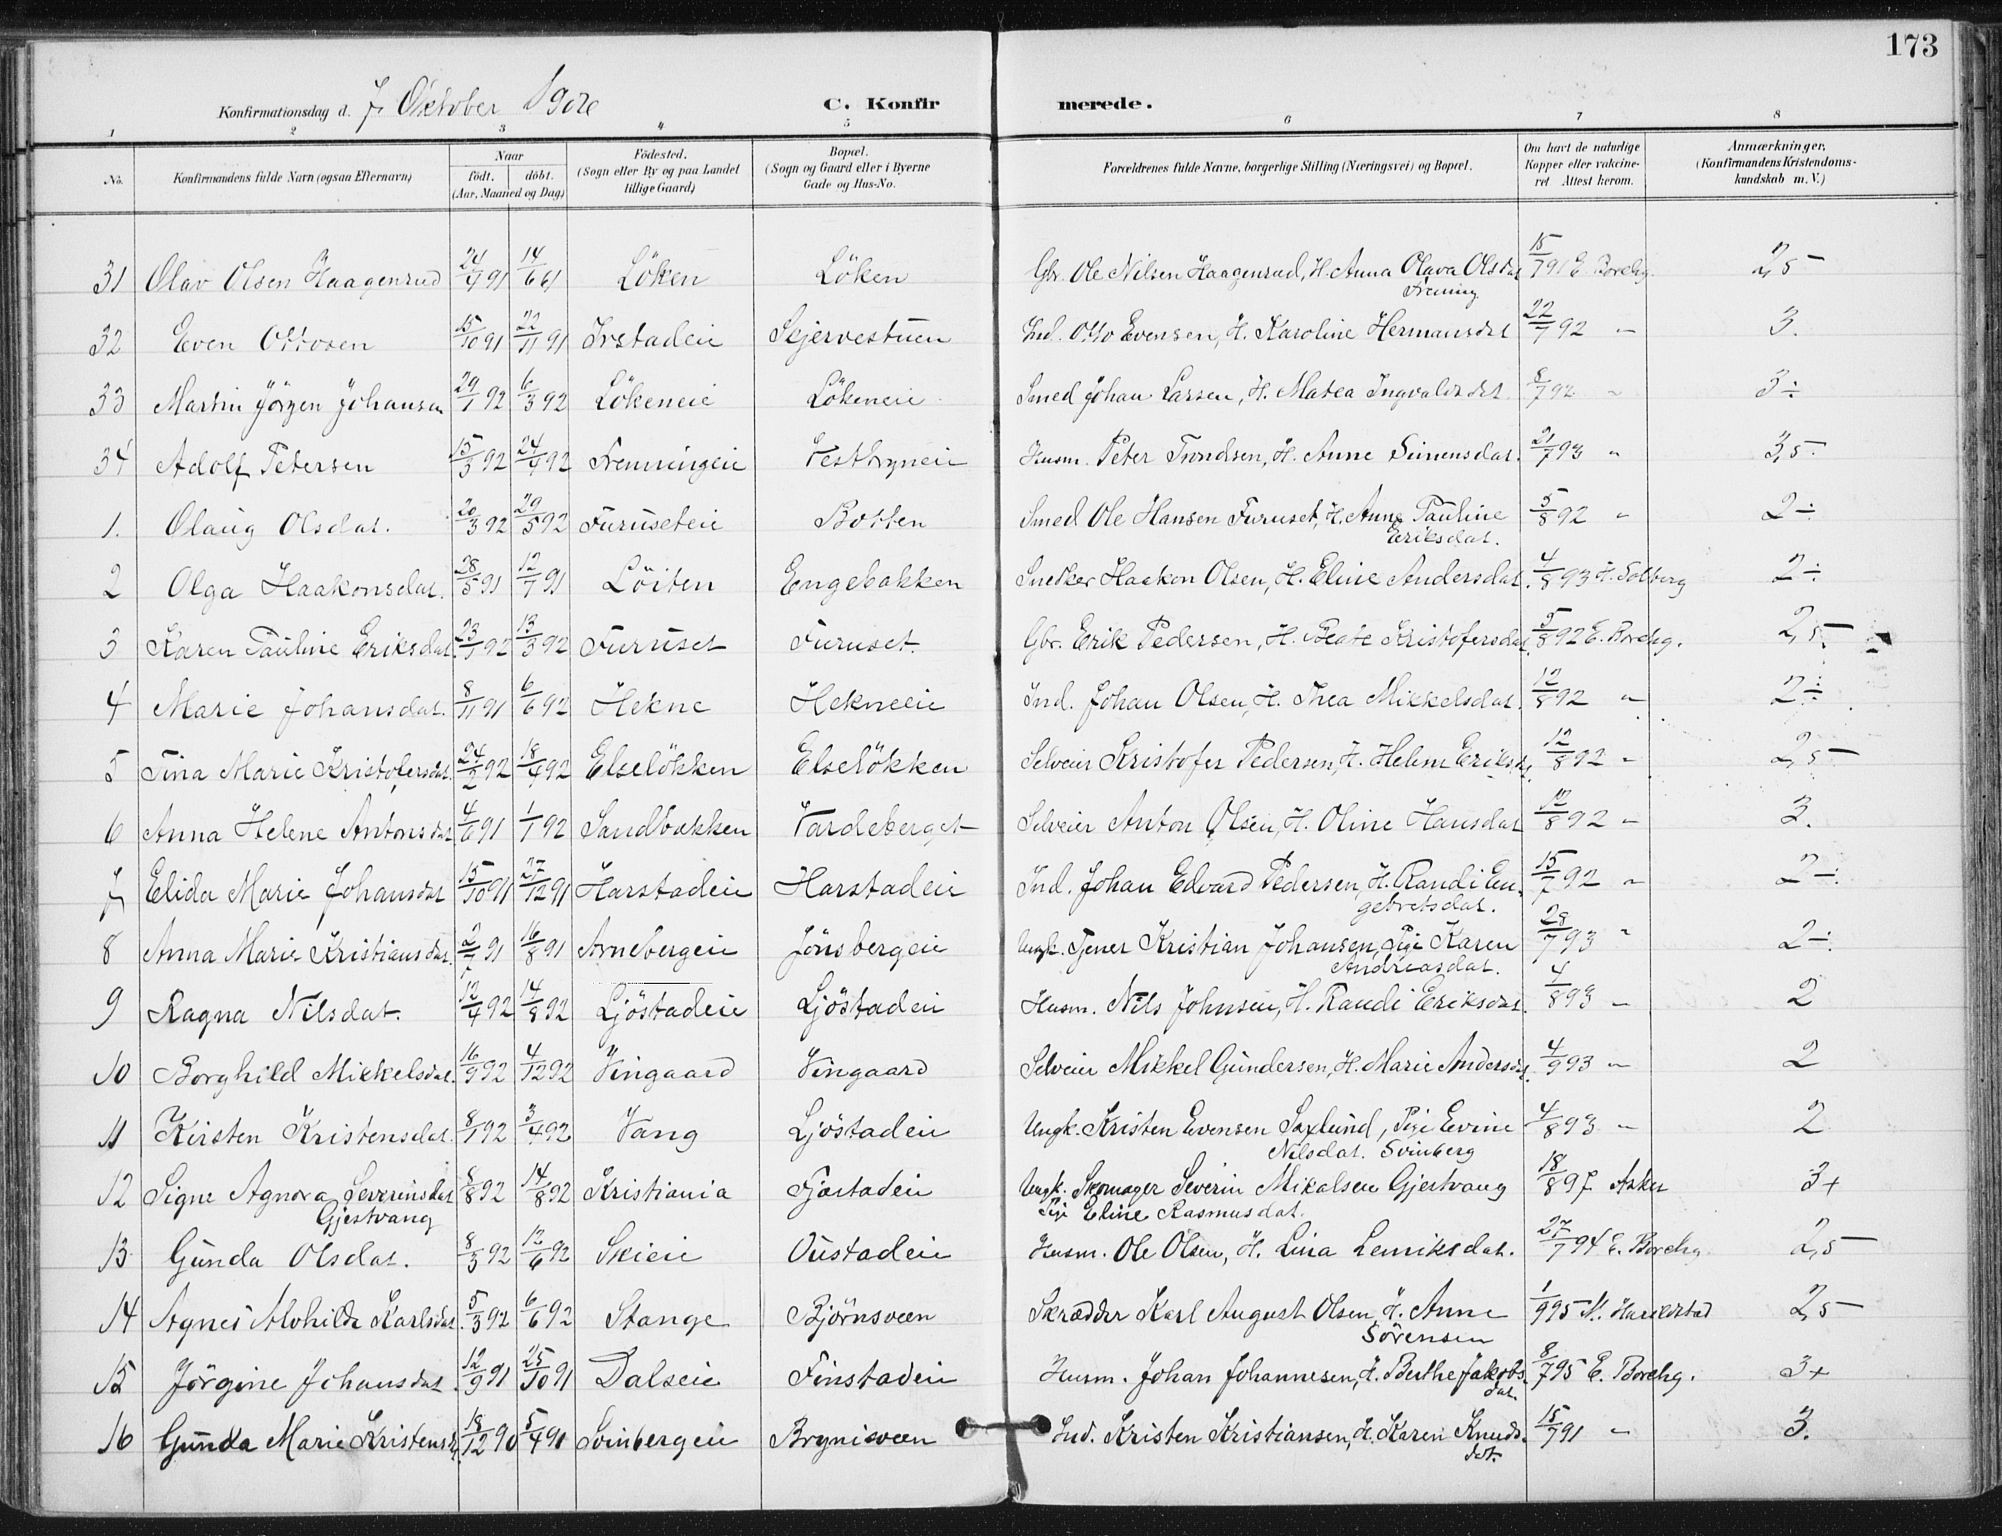 173
Konfirmationsdag d. 7 Oktober 1906 C. Konfirmerede.
1 2 3 4 5 6 7 8
No. Konfirmandens fulde Navn (ogsaa Efternavn) Naar født. døbt. (Aar, Maaned og Dag) Fødested. (Sogn eller By og paa Landet tillige Gaard) Bopæl. (Sogn og Gaard eller i Byerne Gade og Hus-No. Forældrenes fulde Navne, borgerlige Stilling (Næringsvei) og Bopæl. Om havt de naturlige Kopper eller vakcineret Attest herom. Anmærkninger, (Konfirmandens Kristendomskundskab m. V.)
31 Olav Olsen Haagenrud 24/4 91 14/6 91 Löken Löken Gbr. Ole Nilsen Haagenrud, H. Anna Olava Olsdat 15/7 91 E. Borchg. 2,5
Frening
32 Even Ottosen 15/10 91 22/11 91 Ivstadeie Skjervestuen Ind. Otto Evensen, H. Karoline Hermansdat 22/7 92 " 3.
33 Martin Jörgen Johansen 29/1 92 6/3 92 Lökeneie Lökeneie Smed Johan Larsen, H. Matea Ingvaldsdat 8/7 92 " 3÷
34 Adolf Petersen 15/3 92 24/4 92 Frenningeie Vestbyneie Husm. Peter Trondsen, H. Anne Simensdat. 21/7 93 " 3,5
1. Olaug Olsdat. 20/3 92 29/5 92 Furuseteie Botten Smed Ole Hansen Furuset, H. Anne Pauline 5/8 92 " 2÷
Eriksdat.
2 Olga Haakonsdat. 28/5 91 12/7 91 Löiten Engebakken Snedker Haakon Olsen, H. Eline Andersdat. 4/8 93 H. Solberg 2÷
3 Karen Pauline Eriksdat. 23/1 92 13/3 92 Furuset Furuset. Gbr. Erik Pedersen, H. Beate Kristofersdat. 5/8 92 E. Borchg. 2,5
4 Marie Johansdat. 8/11 91 6/6 92 Hekne Hekneeie Ind. Johan Olsen, H. Thea Mikkelsdat. 12/8 92 " 2÷
5 Tina Marie Kristofersdat. 24/2 92 18/4 92 Elselökken Elselökken Selveier Kristofer Pedersen, H. Helene Eriksd. 12/8 92 " 2,5
6 Anna Helene Antonsdat. 4/6 91 1/1 92 Sandbakken Vardeberget Selveier Anton Olsen, H. Oline Hansdat 12/8 92 " 3.
7 Elida Marie Johansdat 15/10 91 27/12 91 Harstadeie Harstadeie Ind. Johan Edvard Pedersen, H. Randi En- 15/7 92 " 2÷
gebretsdat.
8 Anna Marie Kristiansdat. 2/7 91 16/8 91 Arnebergeie Jönsbergeie Ungk. Tjener Kristian Johansen, Pige Karen 28/7 93 " 2÷
Andreasdat.
9 Ragna Nilsdat. 12/4 92 14/8 92 Ljöstadeie Ljöstadeie Husm. Nils Johnsen, H. Randi Eriksdat. 4/8 93 " 2
10 Borghild Mikkelsdat. 16/9 92 4/12 92 Vingaard Vingaard Selveier Mikkel Gundersen, H. Marie Andersdt. 4/9 93 " 2
11 Kirsten Kristensdat. 8/1 92 3/4 92 Vang Ljöstadeie Ungk. Kristen Evensen Saxlund, Pige Evine 4/8 93 " 2
Nilsdat. Svinberg
12 Signe Agnora Severinsdat 8/8 92 14/8 92 Kristiania Fjæstadeie Ungk. Skomager Severin Mikalsen Gjestvang 18/8 97 Asker 3+
Gjestvang Pige Eline Rasmusdat.
13 Gunda Olsdat. 8/3 92 12/6 92 Skieie Oustadeie Husm. Ole Olsen, H. Lina Lenriksdat. 27/7 94 E. Borchg. 2,5
14 Agnes Alvhilde Karlsdat. 5/3 92 6/6 92 Stange Björnsveen Skrædder Karl August Olsen, H. Anne 1/9 95 2,5
Sörensen
15 Jörgine Johansdat. 12/9 91 25/10 91 Dalseie Finstadeie Husm. Johan Johannesen, H. Berthe Jakobs- 8/7 95 E. Borchg. 3+
dat
16 Gunda Marie Kristensd. 18/12 90 5/4 91 Svinbergeie Brynisveen Ind. Kristen Kristiansen, H. Karen Knuds- 15/7 91 " 3.
dat.